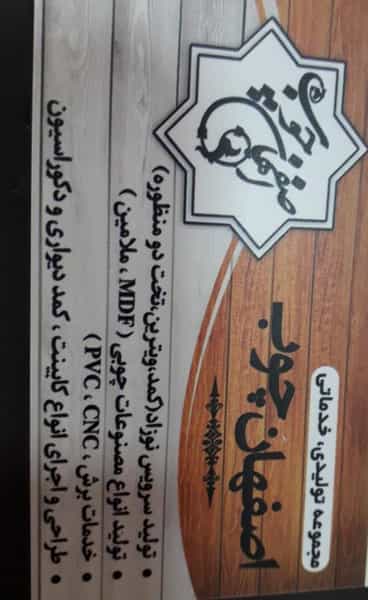 اصفهان چوب
مجموعه تولیدی، خدماتی
اصفهان چوب
• تولید سرویس نوزاد(کمد،ویترین،تخت دو منظوره)
• تولید انواع مصنوعات چوبی (MDF ، ملامین)
• خدمات برش ، PVC ، CNC)
• طراحی و اجرای انواع کابینت ، کمد دیواری و دکوراسیون